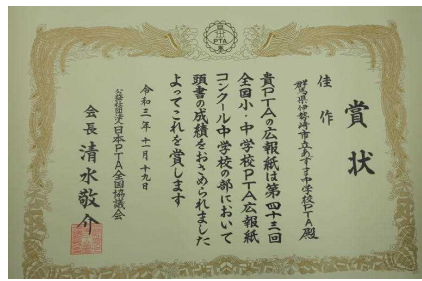 賞状
佳作
群馬県伊勢崎市立あずま中学校PTA殿
貴PTAの広報紙は第四十三回
全国小・中学校PTA広報紙
コンクール中学校の部において
頭書の成績をおさめられました
よってこれを賞します
令和三年十一月十九日
公益社団法人日本PTA全国協議会
会長 清水敬介
PTA